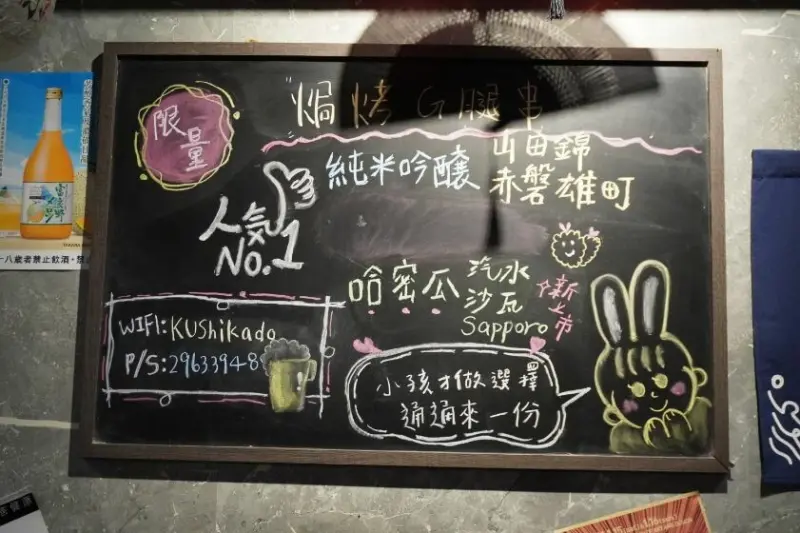 限量
焗烤G腿串
純米吟釀
山田錦
赤磐雄町
人氣
No.1
哈密瓜
汽水
沙瓦
Sapporo
新上市
WIFI:KUShikado
P/S:29633948
小孩才做選擇
通通來一份
富良野
十八歲者禁止飲酒